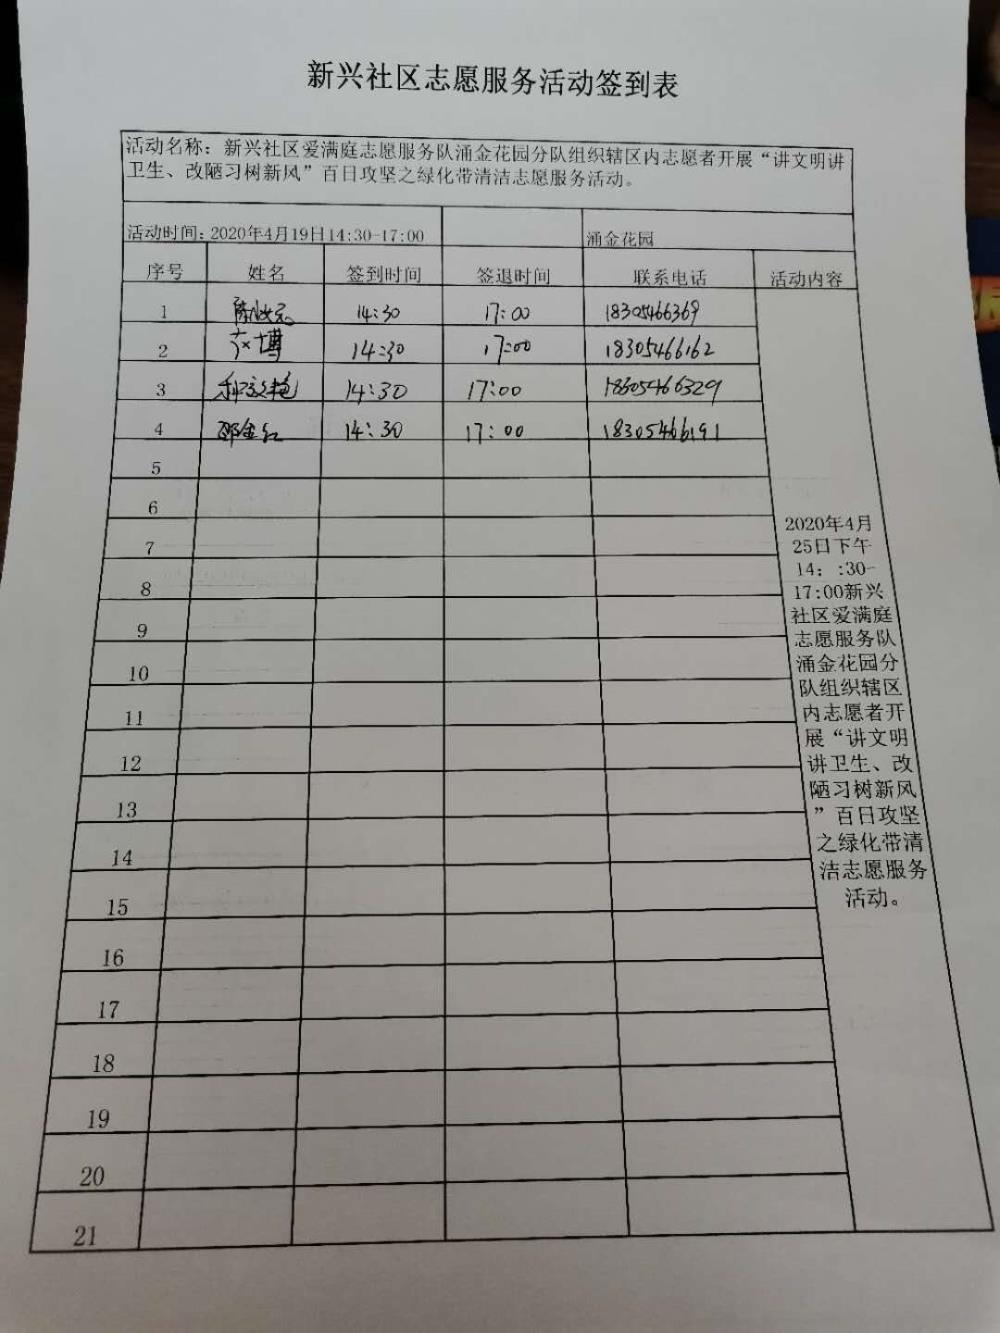 新兴社区志愿服务活动签到表
活动名称：新兴社区爱满庭志愿服务队涌金花园分队组织辖区内志愿者开展“讲文明讲
卫生、改陋习树新风”百日攻坚之绿化带清洁志愿服务活动。
活动时间：2020年4月19日14:30-17:00 涌金花园
序号 姓名 签到时间 签退时间 联系电话 活动内容
1 14:30 17:00 18305466369
2 博 14:30 17:00 18305466162
3 14:30 17:00 18305466329
4 邵金红 14:30 17:00 18305466191
5
6
7
8
9
10
11
12
13
14
15
16
17
18
19
20
21
2020年4月
25日下午
14：:30-
17:00新兴
社区爱满庭
志愿服务队
涌金花园分
队组织辖区
内志愿者开
展“讲文明
讲卫生、改
陋习树新风
”百日攻坚
之绿化带清
洁志愿服务
活动。